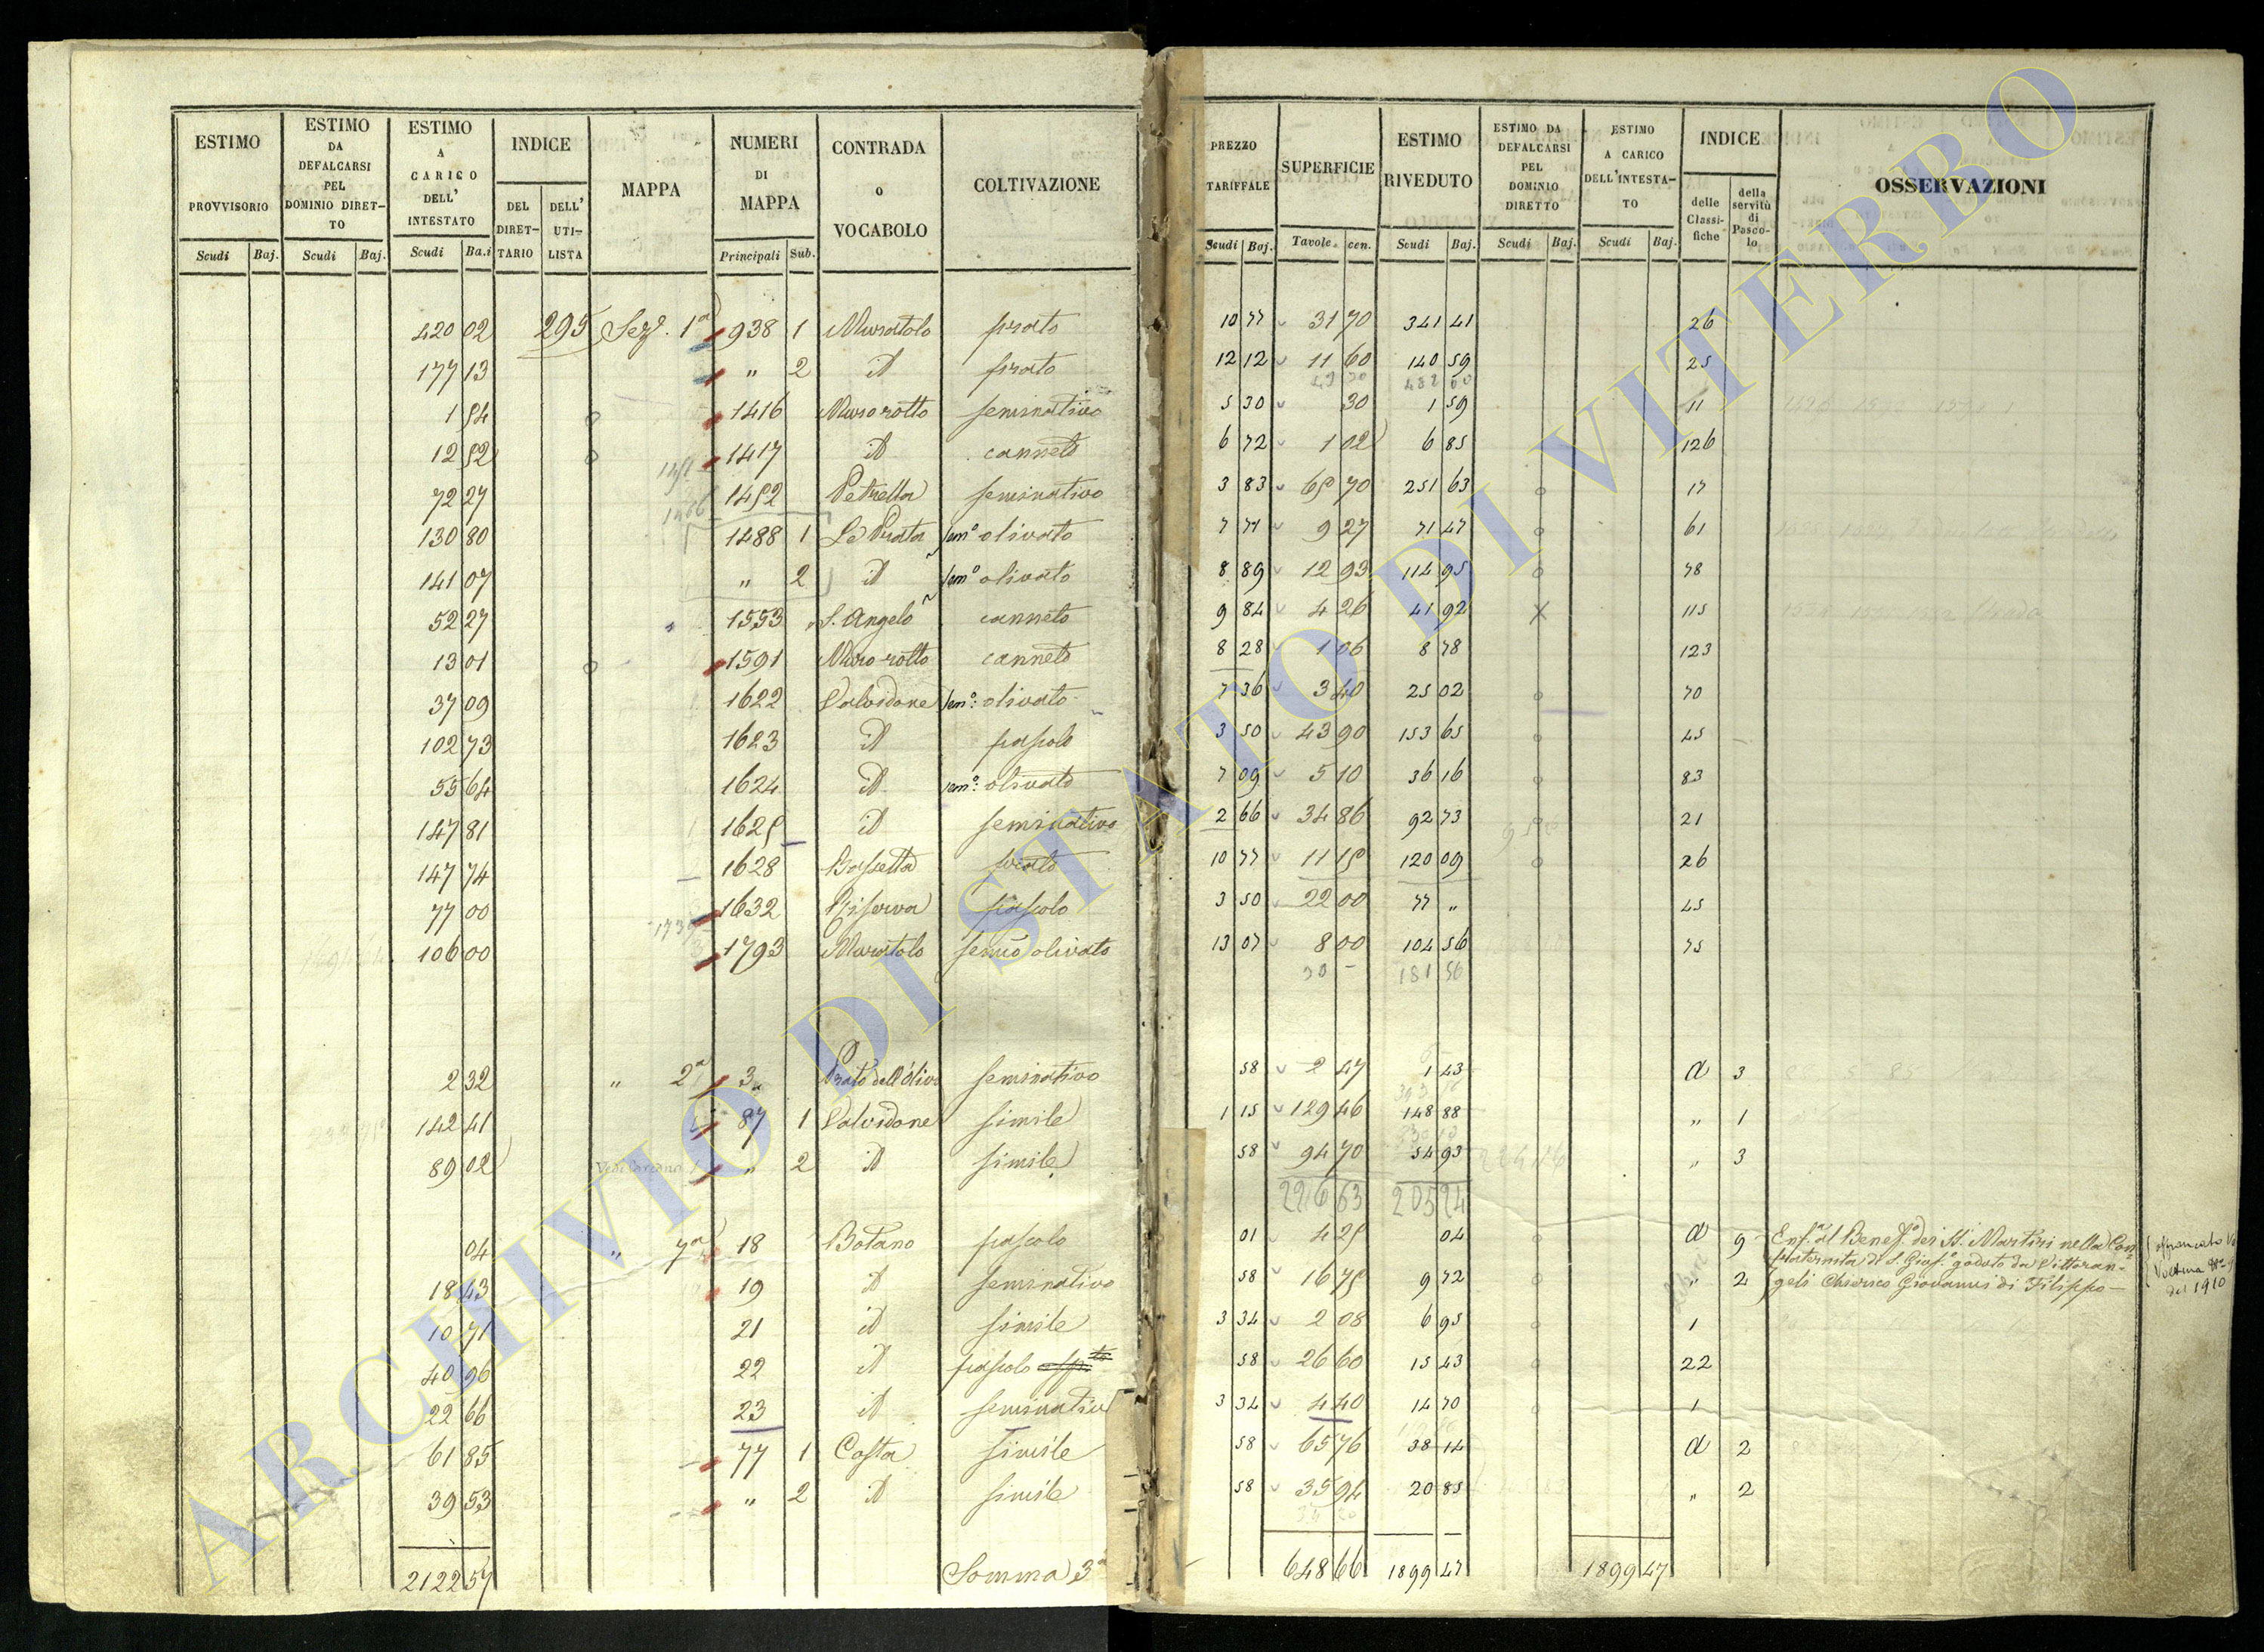 ESTIMO PROVVISORIO Scudi Baj.
ESTIMO DA DEFALCARSI PEL DOMINIO DIRET-TO Scudi Baj.
ESTIMO A CARICO DELL' INTESTATO Scudi Ba.i
INDICE DEL DIRET-TARIO DELL' UTI-LISTA
MAPPA
NUMERI DI MAPPA Principali Sub.
CONTRADA o VOCABOLO
COLTIVAZIONE
PREZZO TARIFFALE Scudi Baj.
SUPERFICIE Tavole cen.
ESTIMO RIVEDUTO Scudi Baj.
ESTIMO DA DEFALCARSI PEL DOMINIO DIRETTO Scudi Baj.
ESTIMO A CARICO DELL'INTESTA-TO Scudi Baj.
INDICE delle Classi-fiche della servitù di Pasco-lo
OSSERVAZIONI
420 02 295 Sez.e 1a 938 1 Muratolo prato 10 77 31 70 341 41 26
177 13 " 2 id prato 12 12 11 60 140 59 25
49 30 482 00
1 54 1416 Muro rotto seminativo 5 30 30 1 59 11
12 52 1417 id canneto 6 72 1 02 6 85 126
72 27 1452 Petrella seminativo 3 83 65 70 251 63 17
130 80 1488 1 Le Prata sem.o olivato 7 71 9 27 71 47 61
141 07 " 2 id sem.o olivato 8 89 12 93 114 95 78
52 27 1553 S. Angelo canneto 9 84 4 26 41 92 X 115
13 01 1591 Muro rotto canneto 8 28 1 06 8 78 123
37 09 1622 Valvidone sem.o olivato 7 36 3 40 25 02 70
102 73 1623 id pascolo 3 50 43 90 153 65 45
55 64 1624 id sem.o olivato 7 09 5 10 36 16 83
147 81 1625 id seminativo 2 66 34 86 92 73 21
147 74 1628 Bassetta prato 10 77 11 15 120 09 26
77 00 1632 Riserva pascolo 3 50 22 00 77 " 45
106 00 1793 Muratolo semo olivato 13 07 8 00 104 56 75
30 – 181 56
2 32 " 2a 3 Prato dell'Olivo seminativo 58 2 47 1 43 a 3
142 41 87 1 Valvidone simile 1 15 129 46 148 88 " 1
89 02 " 2 id simile 58 94 70 54 93 " 3
226 63 205 24
04 " 7a 18 Botano pascolo 01 4 25 04 a 9 Enf.a al Benef.o dei SS. Martiri nella Con-
fraternita di S. Gius.e goduto da Vittoran-
18 43 19 id seminativo 58 16 75 9 72 " 2 geli Chierico Giovanni di Filippo
affrancato V.
Voltura N.o 9
del 1910
10 71 21 id simile 3 34 2 08 6 95 1
40 96 22 id pascolo 58 26 60 15 43 22
22 66 23 id seminativo 3 34 4 40 14 70 1
61 85 77 1 Costa simile 58 65 76 38 14 a 2
39 53 " 2 id simile 58 35 94 20 85 " 2
2122 57 Somma 3a 648 66 1899 47 1899 47
ARCHIVIO DI STATO DI VITERBO